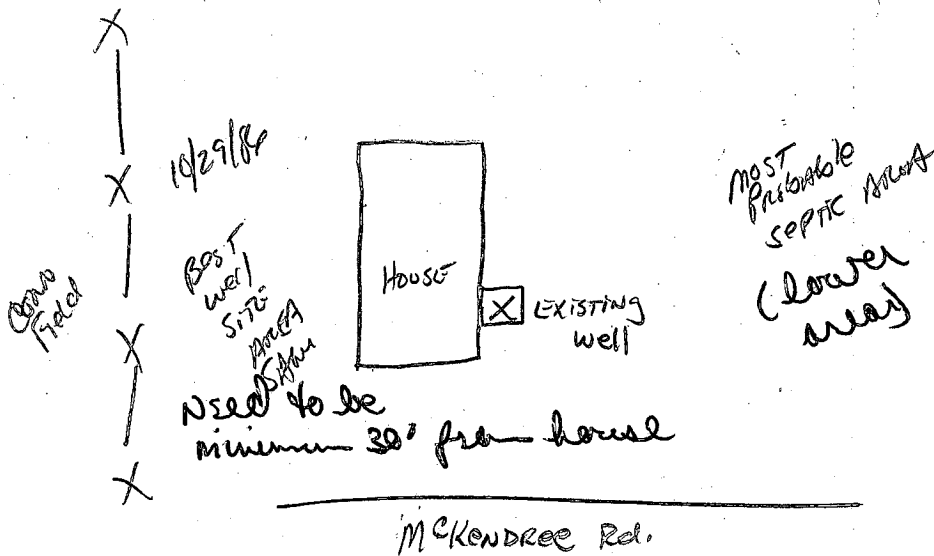 X
X
X
X
Corn
Field
10/29/86
Best
well
Site
Area
HOUSE
X
EXISTING
well
MOST
Probable
Septic Area
(lower
area)
Need to be
minimum 30' from house
McKENDREE Rd.